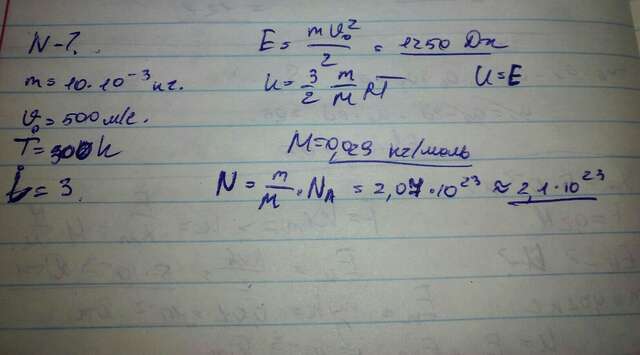 N-?.
m=10·10⁻³ кг.
υ₀=500 м/с.
T=300 K
i=3.
E = mυ₀²/2 = 1250 Дж
U = 3/2 m/M RT U=E
M=0,029 кг/моль
N = m/M · N_A = 2,07·10²³ ≈ 2,1·10²³